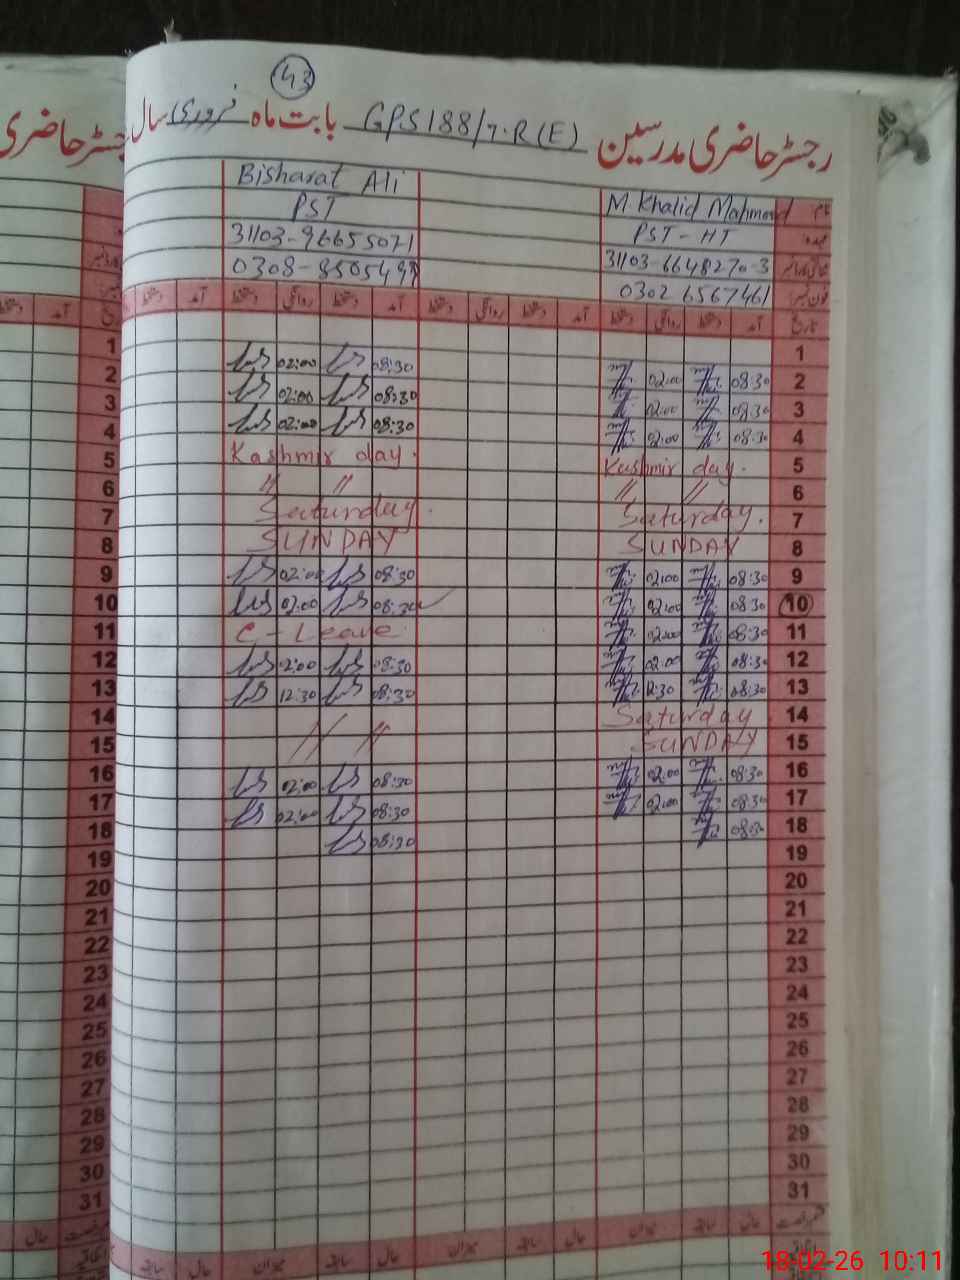 43
رجسٹر حاضری مدرسین GPS 188/7.R(E) بابت ماہ فروری سال
نام M Khalid Mahmood Bisharat Ali
عہدہ PST-HT PST
31103-6648270-3 31103-96655071
فون نمبر 0302 6567461
تاریخ آمد دستخط روانگی دستخط آمد دستخط روانگی دستخط آمد دستخط روانگی دستخط آمد دستخط
1
2 08:30 02:00 08:30 02:00
3 08:30 02:00 08:30 02:00
4 08:30 02:00 08:30 02:00
5 Kashmir day. Kashmir day.
6 〃 〃 〃 〃
7 Saturday. Saturday.
8 SUNDAY SUNDAY
9 08:30 02:00 08:30 02:00
10 08:30 02:00 08:30 02:00
11 08:30 02:00 C-Leave
12 08:30 02:00 08:30 02:00
13 08:30 12:30 08:30 12:30
14 Saturday
15 SUNDAY 〃 〃
16 08:30 02:00 08:30 02:00
17 08:30 02:00 08:30 02:00
18 08:30 08:30
19
20
21
22
23
24
25
26
27
28
29
30
31
حال سابقہ میزان حال سابقہ میزان حال سابقہ
18-02-26 10:11